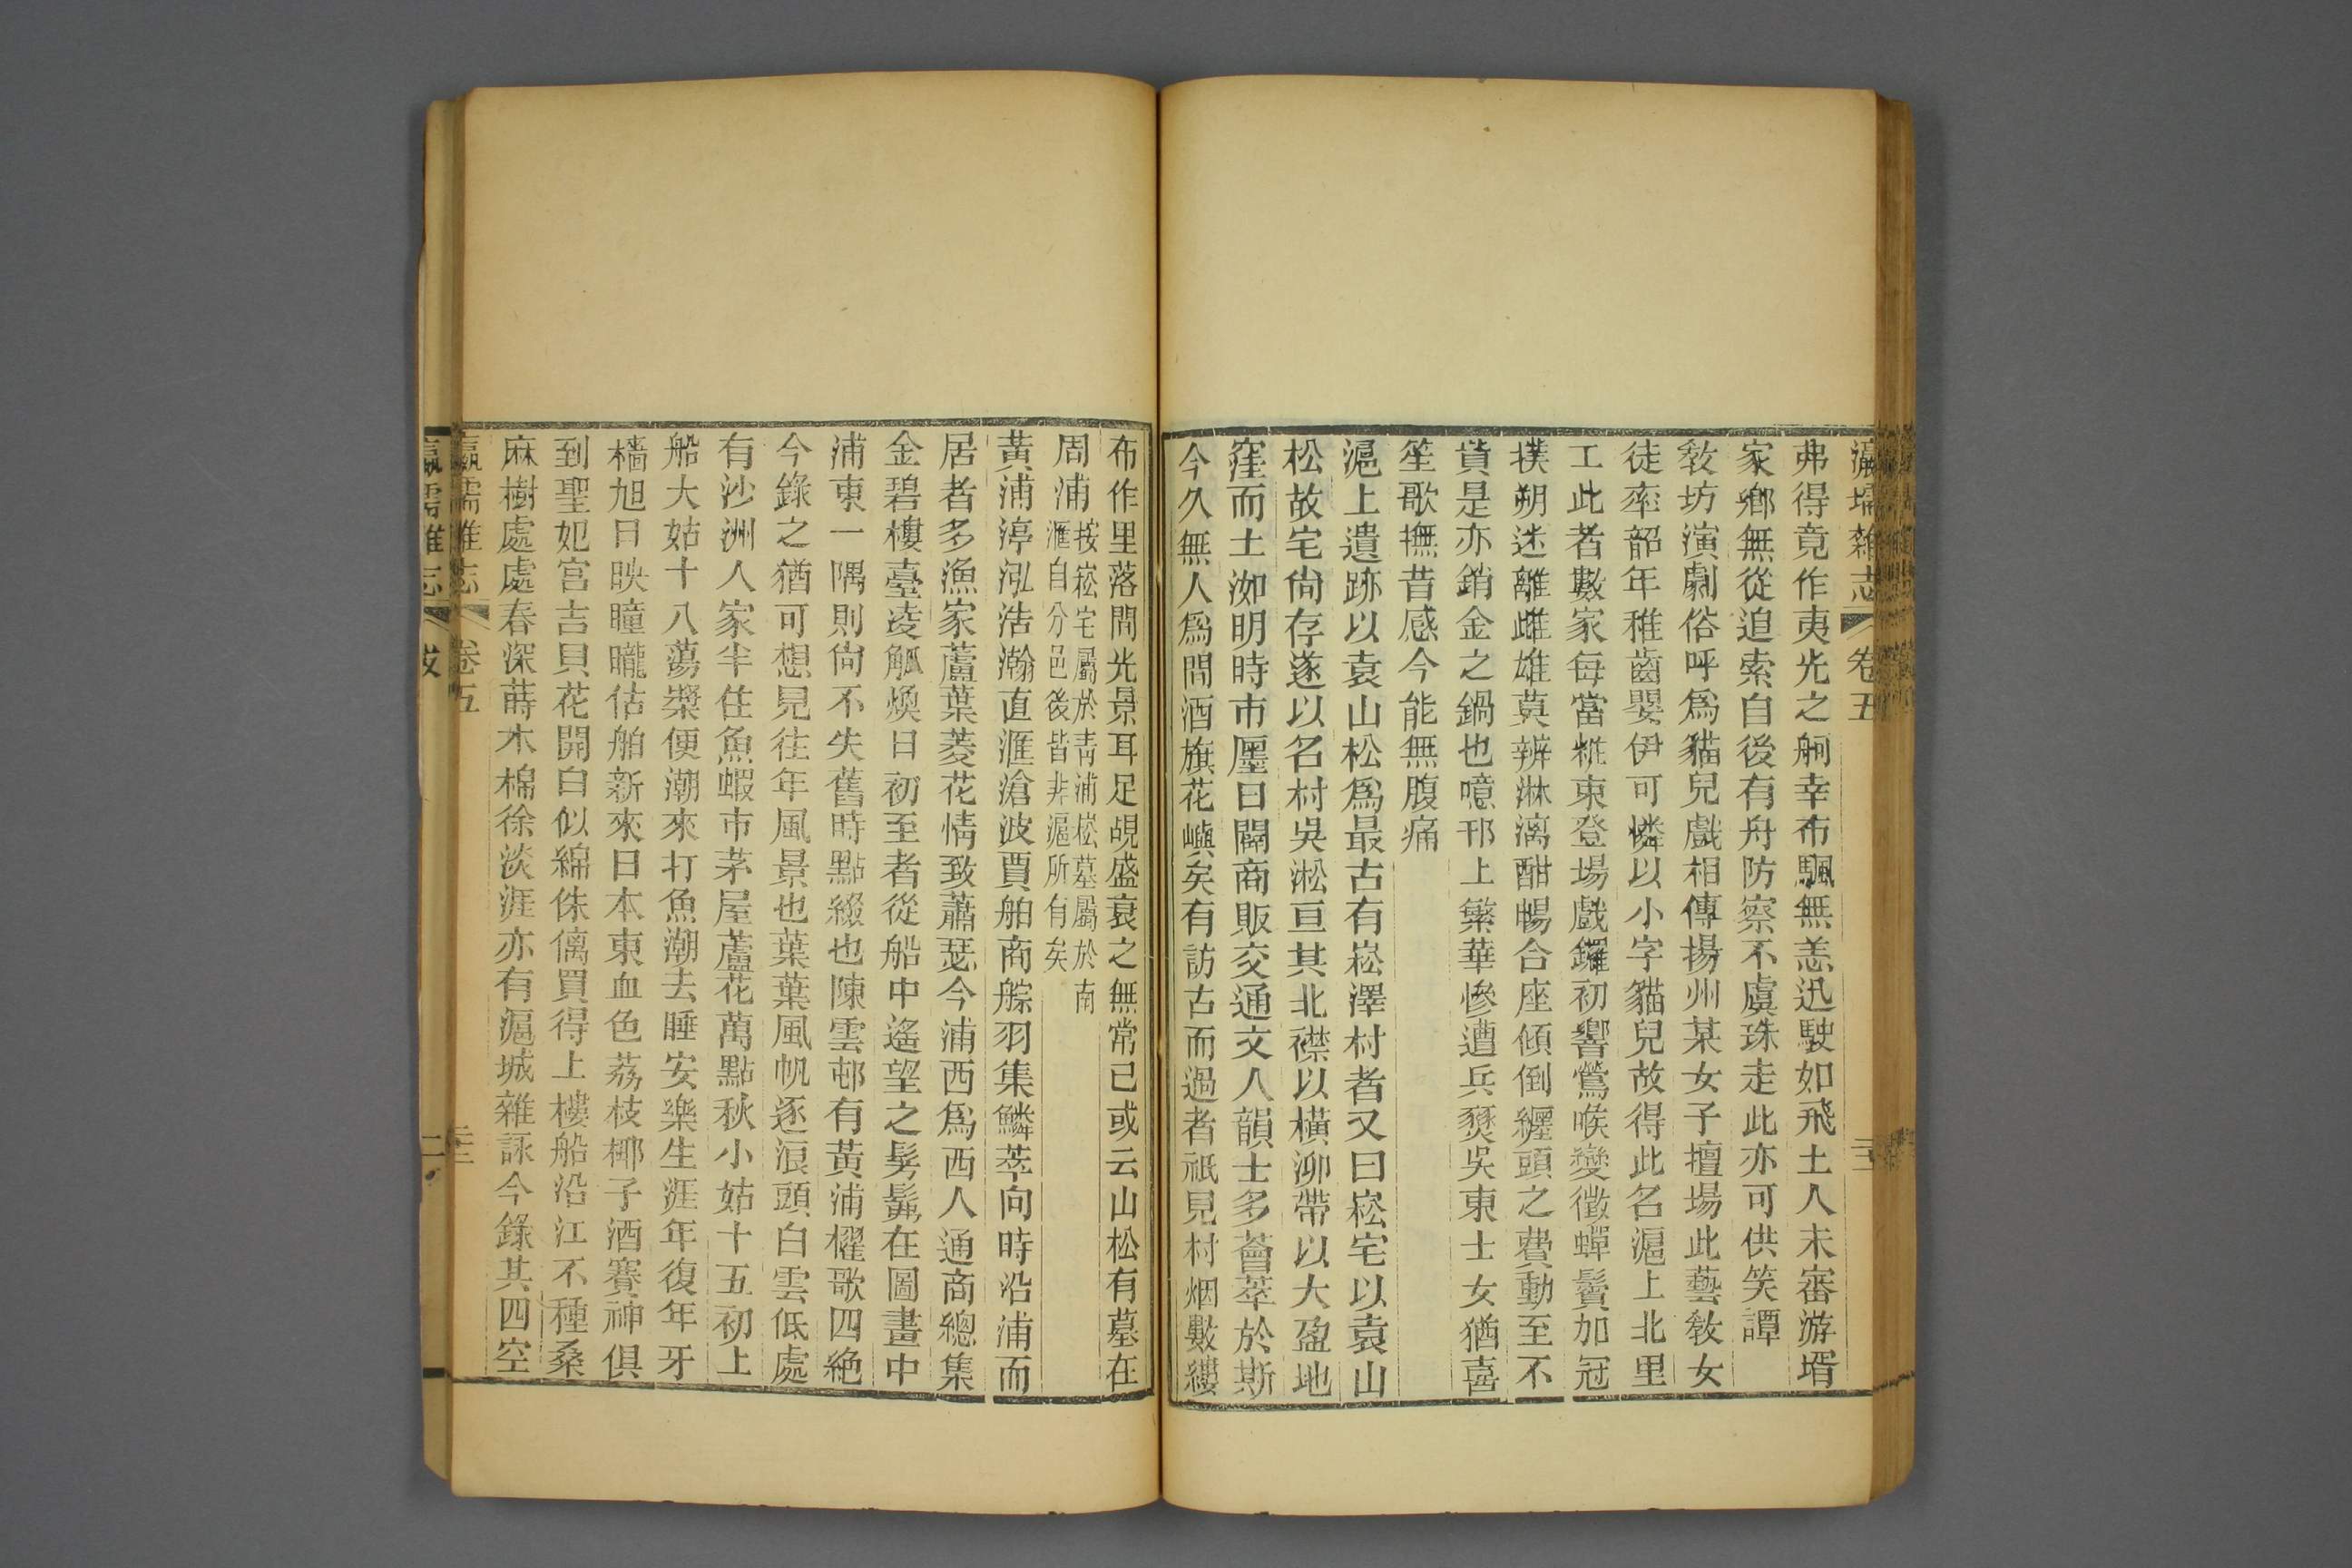 瀛壖雜志 卷五 三
弗得竟作夷光之舸幸布颿無恙迅駛如飛土人未審游壻
家鄉無從追索自後有舟防察不虞珠走此亦可供笑譚
敎坊演劇俗呼爲貓兒戲相傳揚州某女子擅場此藝敎女
徒率韶年稚齒嬰伊可憐以小字貓兒故得此名滬上北里
工此者數家每當粧束登場戲鑼初響鶯喉變徵蟬鬢加冠
撲朔迷離雌雄莫辨淋漓酣暢合座傾倒纏頭之費動至不
貲是亦銷金之鍋也噫邗上繁華慘遭兵燹吳東士女猶喜
笙歌撫昔感今能無腹痛
滬上遺跡以袁山松爲最古有崧澤村者又曰崧宅以袁山
松故宅尙存遂以名村吳淞亘其北襟以橫泖帶以大盈地
窪而土沏明時市廛日闢商販交通文人韻士多薈萃於斯
今久無人爲問酒旗花嶼矣有訪古而過者祇見村烟數縷
布作里落間光景耳足覘盛衰之無常已或云山松有墓在
周浦按崧宅屬於靑浦崧墓屬於南
滙自分邑後皆非滬所有矣
黃浦渟泓浩瀚直滙滄波賈舶商艅羽集鱗萃向時沿浦而
居者多漁家蘆葉菱花情致蕭瑟今浦西爲西人通商總集
金碧樓臺凌觚煥日初至者從船中遙望之髣髴在圖畫中
浦東一隅則尙不失舊時點綴也陳雲邨有黃浦櫂歌四絶
今錄之猶可想見往年風景也葉葉風帆逐浪頭白雲低處
有沙洲人家半住魚蝦市茅屋蘆花萬點秋小姑十五初上
船大姑十八蕩槳便潮來打魚潮去睡安樂生涯年復年牙
檣旭日映曈曨估舶新來日本東血色荔枝椰子酒賽神俱
到聖妃宮吉貝花開白似綿侏儷買得上樓船沿江不種桑
麻樹處處春深蒔木棉徐淡涯亦有滬城雜詠今錄其四空
瀛壖雜志 卷五 三
瀛壖雜志 跋 二